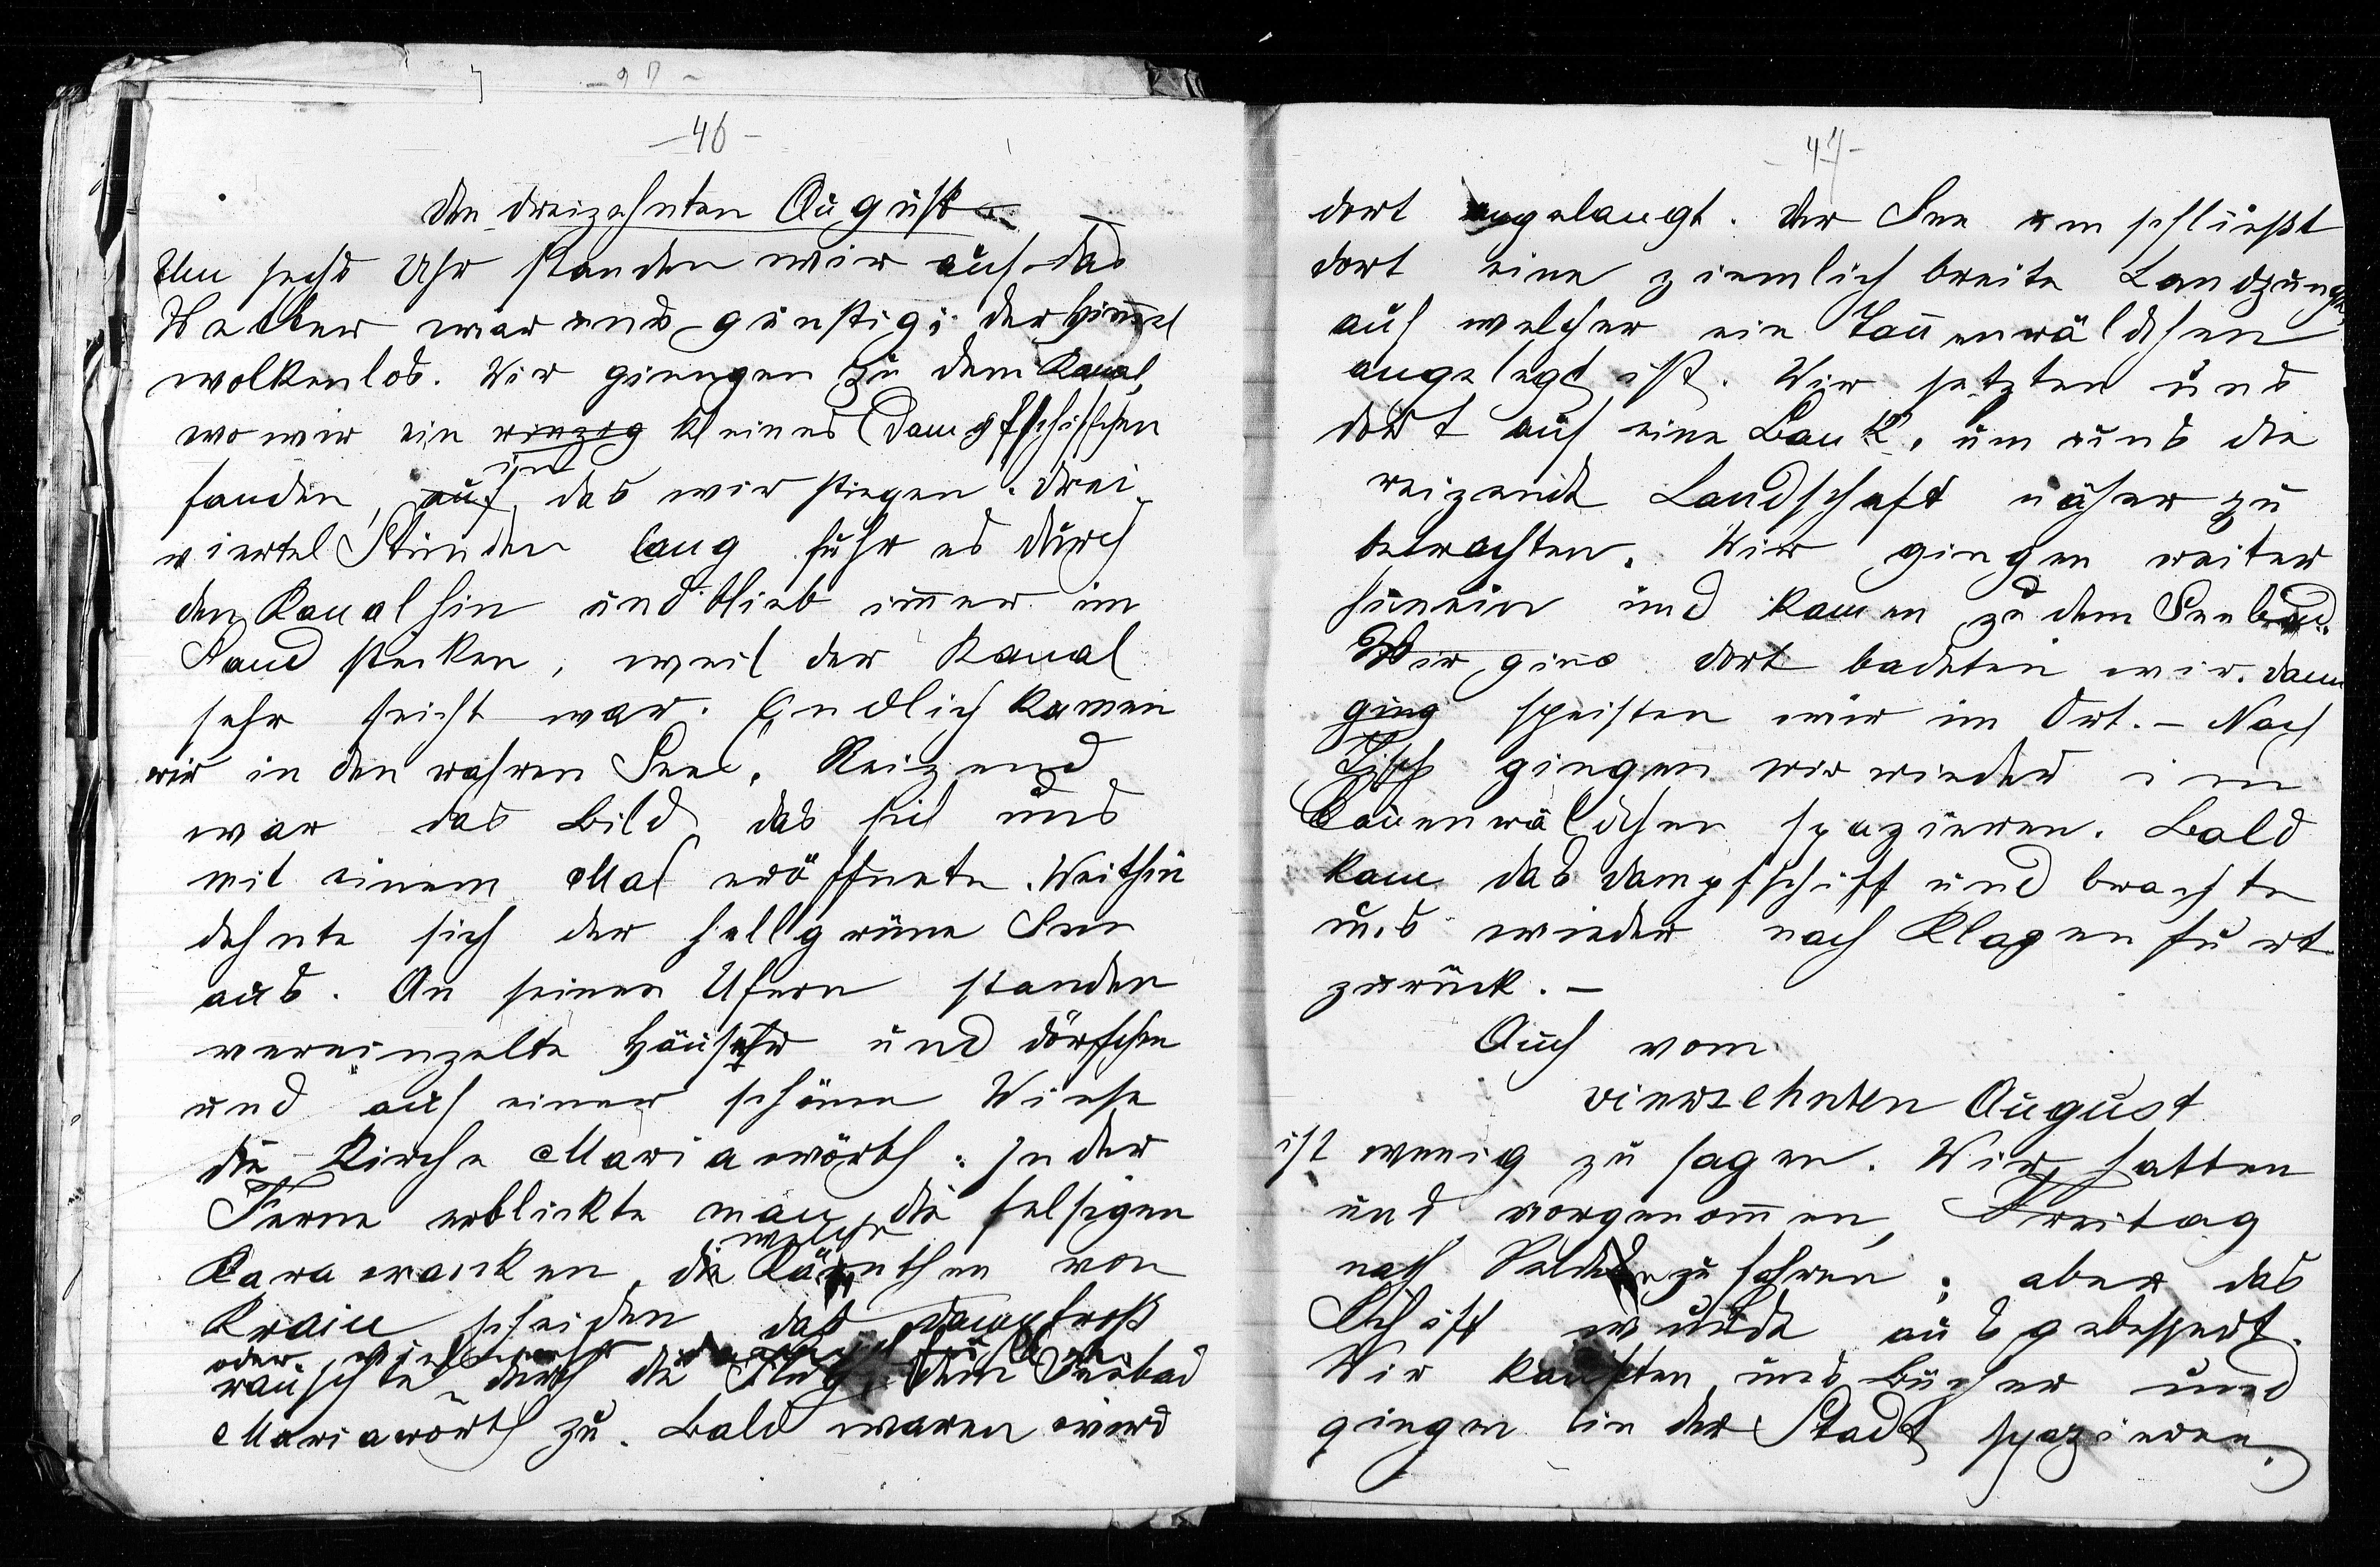 -46-
Den dreizehnten August
Um sechs Uhr standen wir auf das
Wetter war uns günstig; der Him̅el
wolkenlos. Wir giengen zu dem Kanal,
wo wir ein winzig kleines Dampfschiffchen
in
fanden, auf das wir stiegen. Drei
viertel Stunden lang fuhr es durch
den Kanal hin und blieb im̅er im
Sand stecken, weil der Kanal
sehr seicht war. Endlich kamen
wir in den wahren See. Reizend
war das Bild, das sich uns
mit einem Mal eröffnete. Weithin
dehnte sich der hellgrüne See
aus. An seinen Ufern standen
vereinzelte Häuser und Dörfchen
und auf einer schönen Wiese
die Kirche Mariawörth. In der
Ferne erblickte man die felsigen
welche
Karawanken, die Kärnthen von
Krain scheiden das Dampfroß
oder vielmehr
rauschte durch die Flut, dem Seebad
Mariawörth zu. Bald waren wird
-47-
dort angelangt. Der See umschließt
dort eine ziemlich breite Landzunge,
auf welcher ein Tan̅enwäldchen
angelegt ist. Wir setzten uns
dort auf eine Bank, um uns die
reizende Landschaft näher zu
betrachten. Wir gingen weiter
hinein und kamen zu dem Seebad.
Wir ging dort badeten wir. Dann
ging speisten wir im Ort. – Nach
Tisch gingen wir wieder im
Tan̅enwäldchen spazieren. Bald
kam das Dampfschiff und brachte
uns wieder nach Klagenfurt
zurück. –
Auch vom
vierzehnten August
ist wenig zu sagen. Wir hatten
und vorgenom̅en, Freitag
nach zu fahren; aber das
Schiff wurde ausgebessert.
Wir kauften uns Bücher und
gingen in der Stadt spazieren.